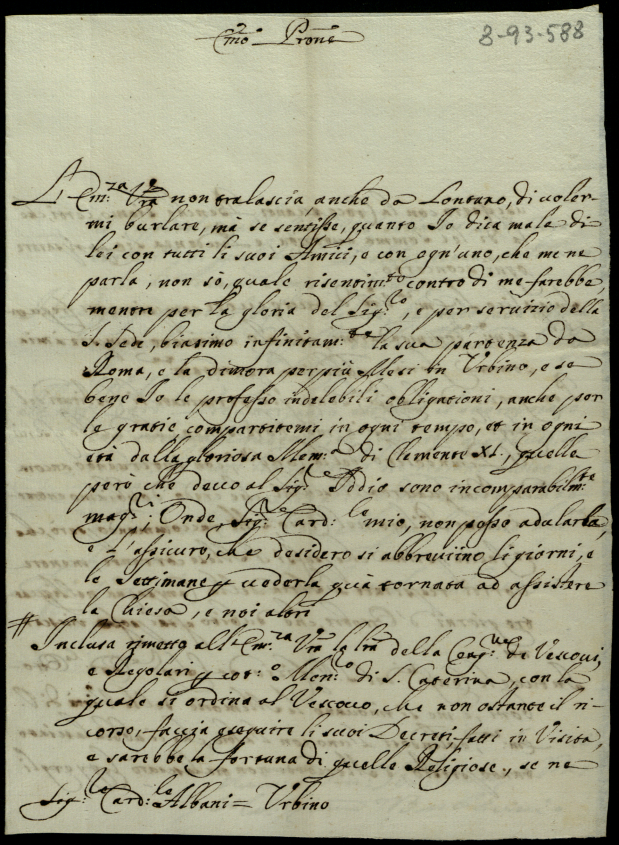 Em:mo Prone
8-93-588
L'Em:za Vra non tralascia, anche da Lontano, di voler-
mi burlare, mà se sentisse, quanto Io dica male di
lei con tutti li suoi Amici, e con ogn'uno, che me ne
parla, non sò, quale risentim:to contro di me farebbe,
mentre per la gloria del Sig:re, e per servizio della
S. Sede, biasimo infinitam:te la sua partenza da
Roma, e la dimora per più Mesi in Urbino, e se
bene Io le professo indelebili obligationi, anche per
le gratie compartitemi in ogni tempo, et in ogni
età dalla gloriosa Mem:a di Clemente XI., quelle
però che devo al Sig:re Iddio sono incomparabilm:te
mag:ri; Onde, Sig:re Card:le mio, non posso adularla,
e l'assicuro, che desidero si abbrevino li giorni, e
le Settimane p vederla quà tornata ad assistere
la Chiesa, e noi altri
# Inclusa rimetto all'Em:za Vra la lra della Cong:ne de Vescovi,
e Regolari p cot:o Mon:o di S. Caterina, con la
quale si ordina al Vescovo, che non ostante il ri-
corso, faccia eseguire li suoi Decreti fatti in Visita,
e sarebbe la fortuna di quelle Religiose, se ne
Sig:re Card:le Albani = Urbino